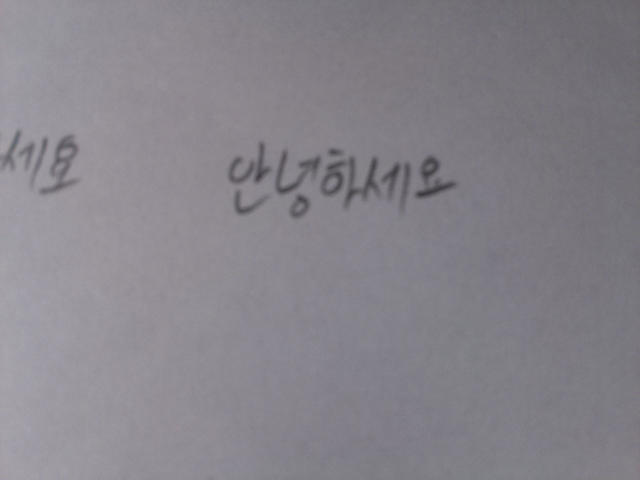 세요 안녕하세요